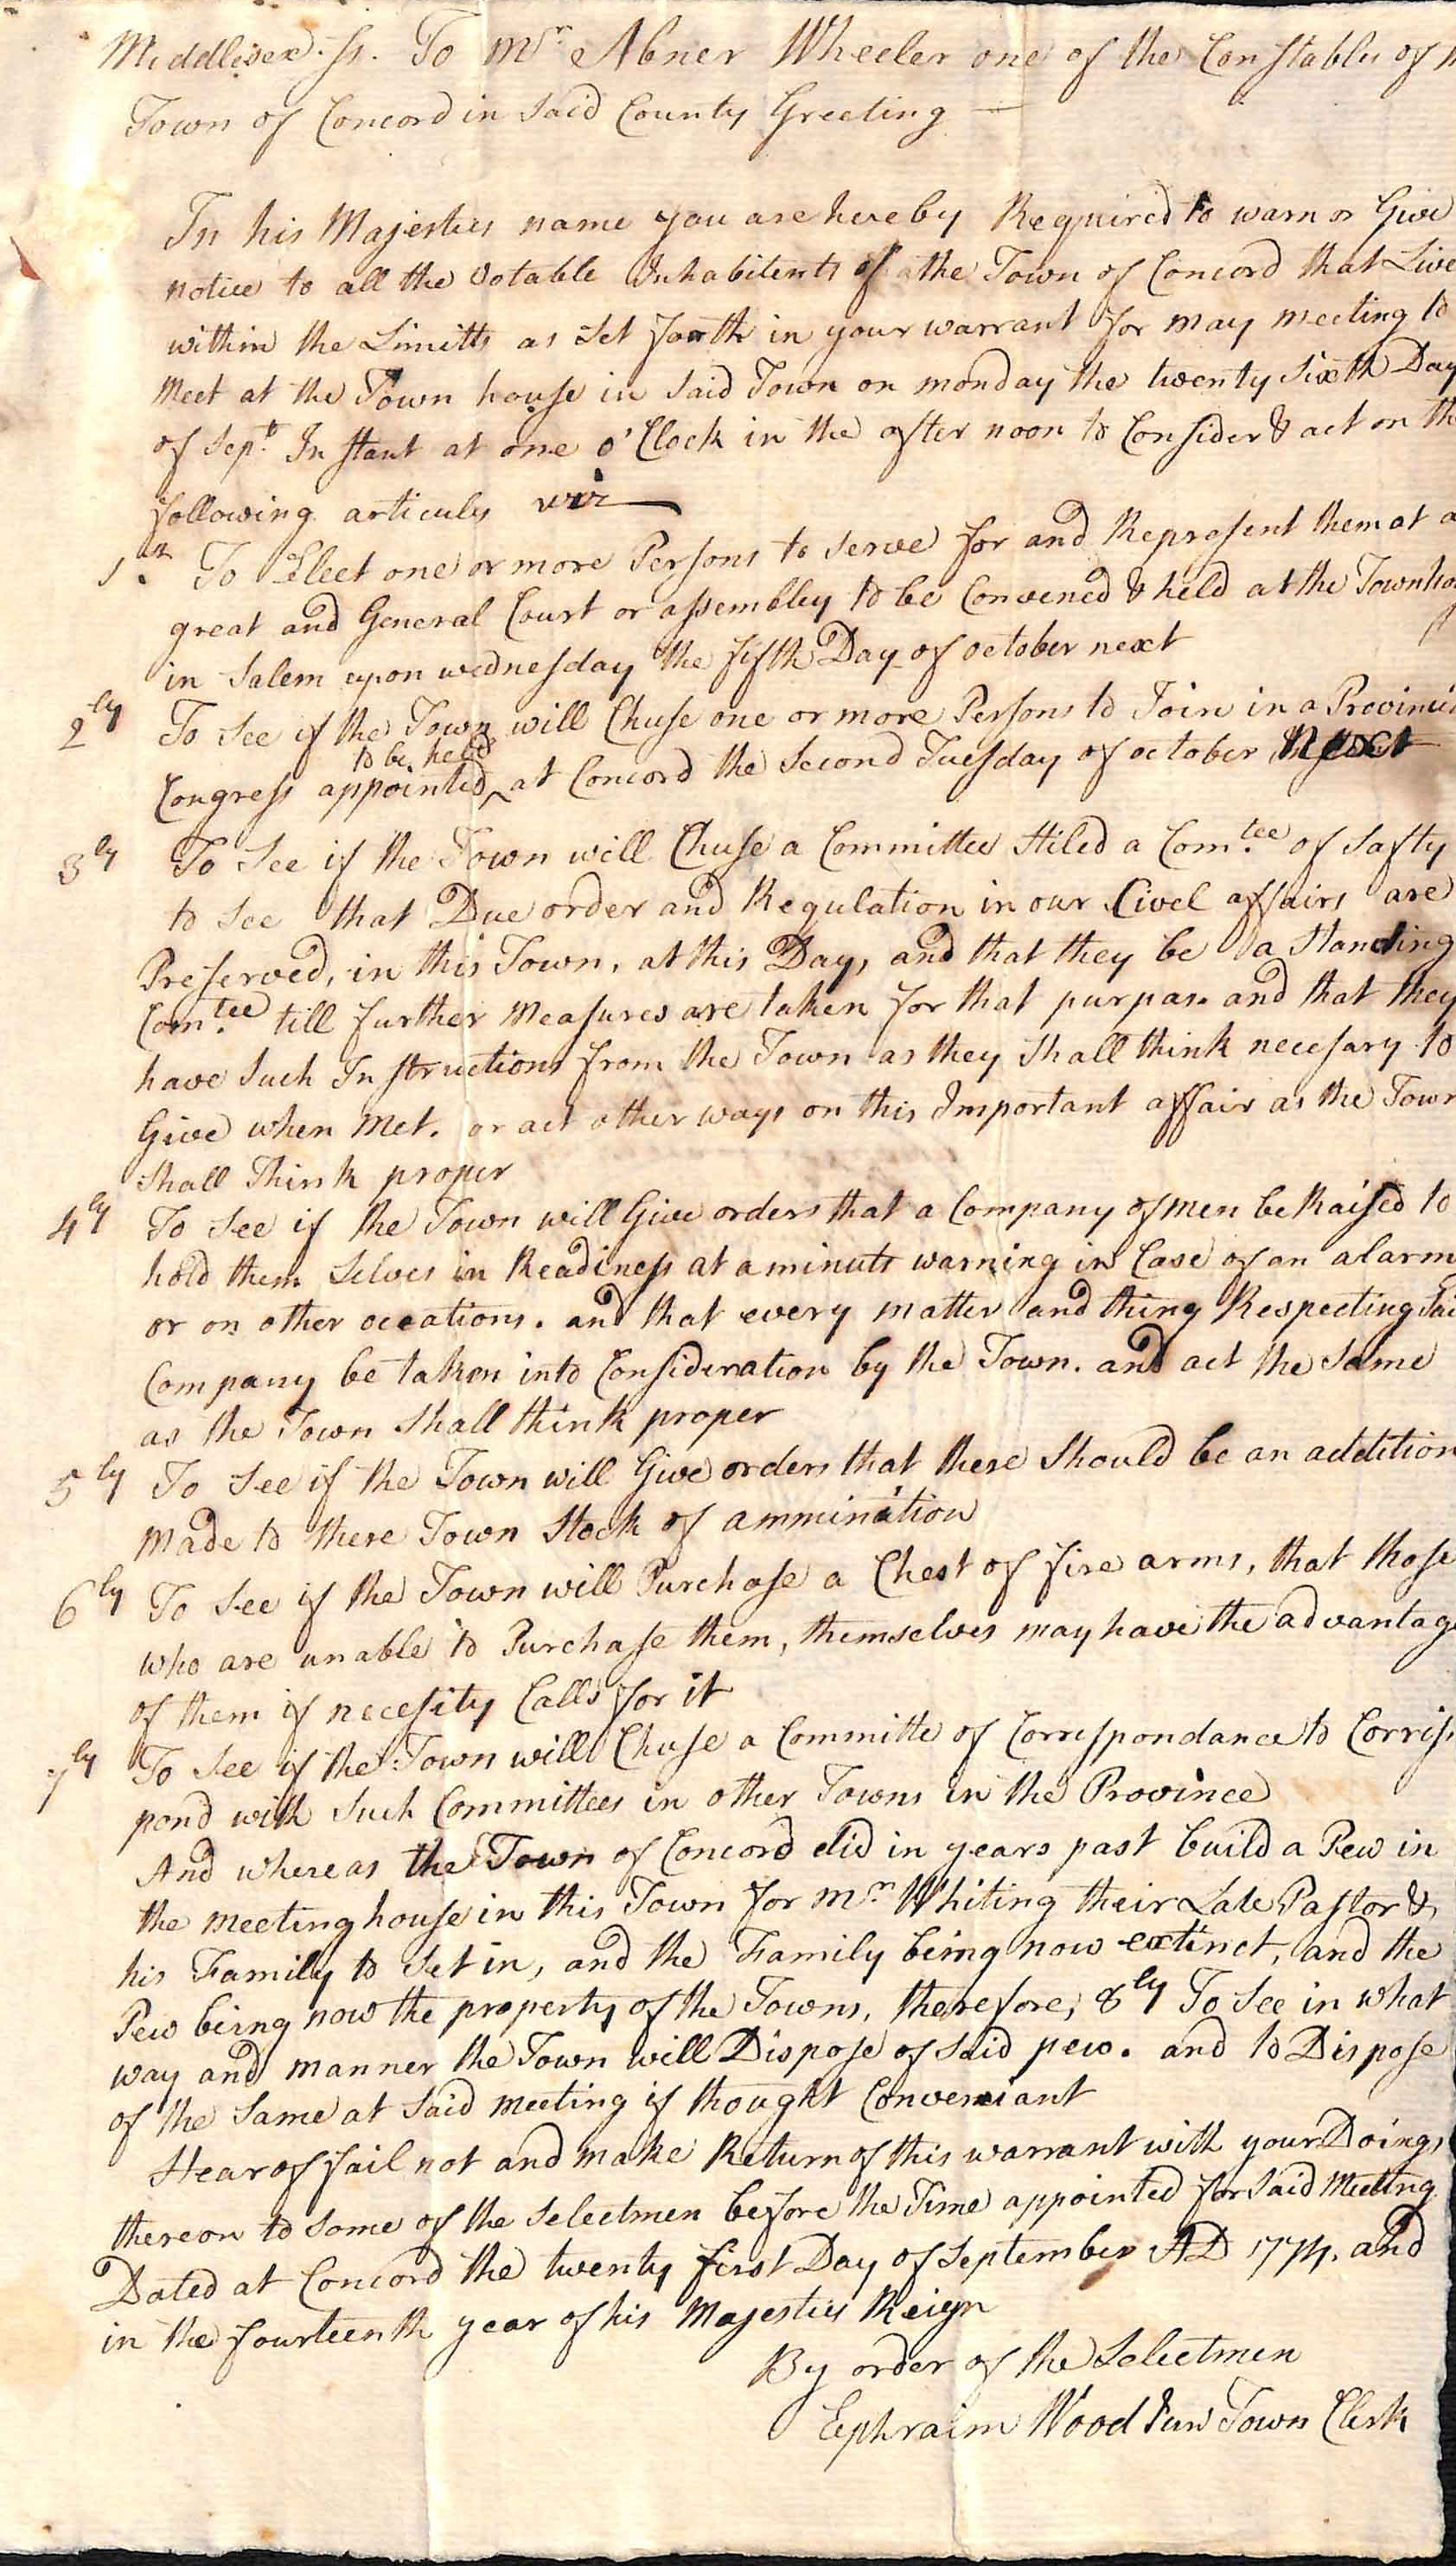 Middlesex. ss. To Mr. Abner Wheeler one of the Constables of
Town of Concord in Said County Greeting —
In his Majesties name you are hereby Required to warn or Give
notice to all the Votable Inhabitents of the Town of Concord that Live
within the Limitts as Set forth in your warrant for may meeting to
Meet at the Town house in Said Town on monday the twenty Sixth Day
of Sept. Instant at one o'Clock in the after noon to Consider & act on the
following articules viz
1st. To Elect one or more Persons to Serve for and Represent them at a
great and General Court or assembley to be Convened & held at the Townho
in Salem upon wednesday the fifth Day of october next
2ly To See if the Town will Chuse one or more Persons to Join in a Provinci
to be held
Congress appointed ^ at Concord the Second Tuesday of october Next
3ly To See if the Town will Chuse a Committee Stiled a Com.tee of Safty
to See that Due order and Regulation in our Civel affairs are
Preserved, in this Town, at this Day, and that they be a Standing
Com.tee till further Measures are taken for that purpas. and that they
have Such Instructions from the Town as they Shall think necesary to
Give when Met. or act other ways on this Important affair as the Town
Shall Think proper
4ly To See if the Town will Give orders that a Company of men be Raised to
hold them Selves in Readiness at a minuts warning in Case of an alarm
or on other occations. and that every matter and thing Respecting Sai
Company be taken into Consideration by the Town. and act the Same
as the Town Shall think proper
5ly To See if the Town will Give orders that there Should be an addition
Made to there Town Stock of ammination
6ly To See if the Town will Purchase a Chest of fire arms, that those
who are unable to Purchase them, themselves may have the advantage
of them if necesity Calls for it
7ly To See if the Town will Chuse a Committe of Correspondance to Corris
pond with Such Committees in other Towns in the Province
And whereas the Town of Concord did in years past build a Pew in
the meeting house in this Town for Mr. Whiting their Late Pastor &
his Family to Set in, and the Family being now extinct, and the
Pew being now the property of the Towns, therefore, 8ly To See in what
way and manner the Town will Dispose of Said pew. and to Dispose
of the Same at Said meeting if thought Conveniant
Hearof fail not and make Return of this warrant with your Doings
thereon to Some of the Selectmen before the Time appointed for Said Meeting
Dated at Concord the twenty first Day of September AD 1774. and
in the fourteenth year of his Majesties Reign
By order of the Selectmen
Ephraim Wood Jun Town Clerk